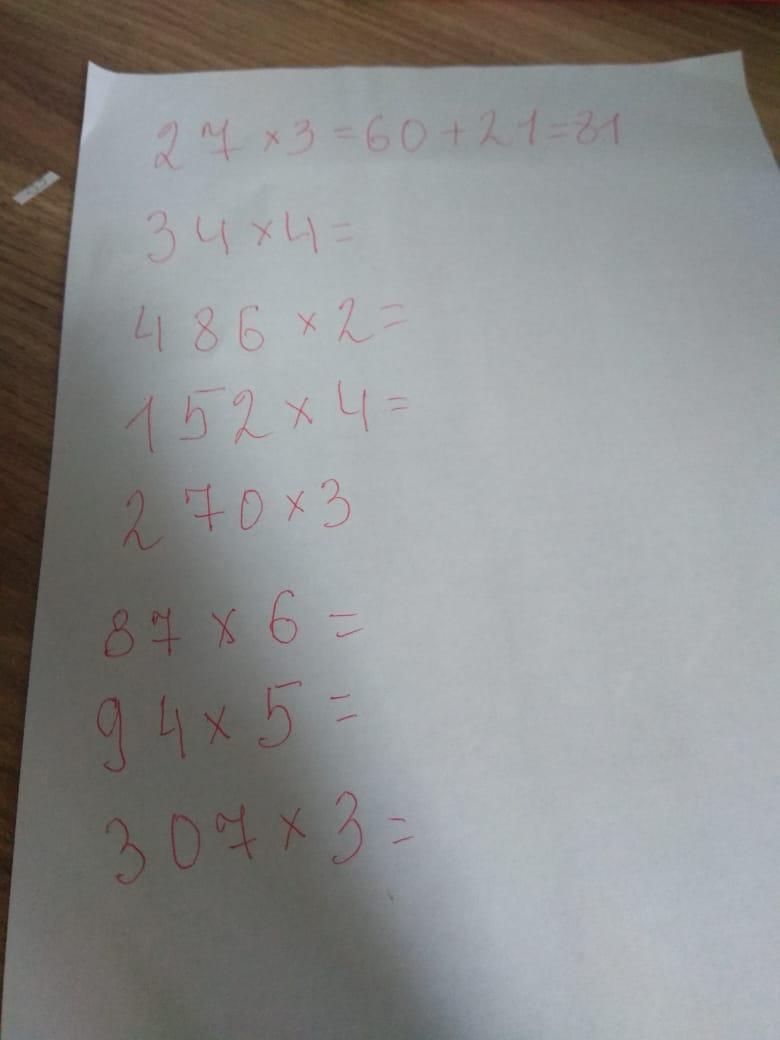 27 × 3 = 60 + 21 = 81
34 × 4 =
486 × 2 =
152 × 4 =
270 × 3
87 × 6 =
94 × 5 =
307 × 3 =